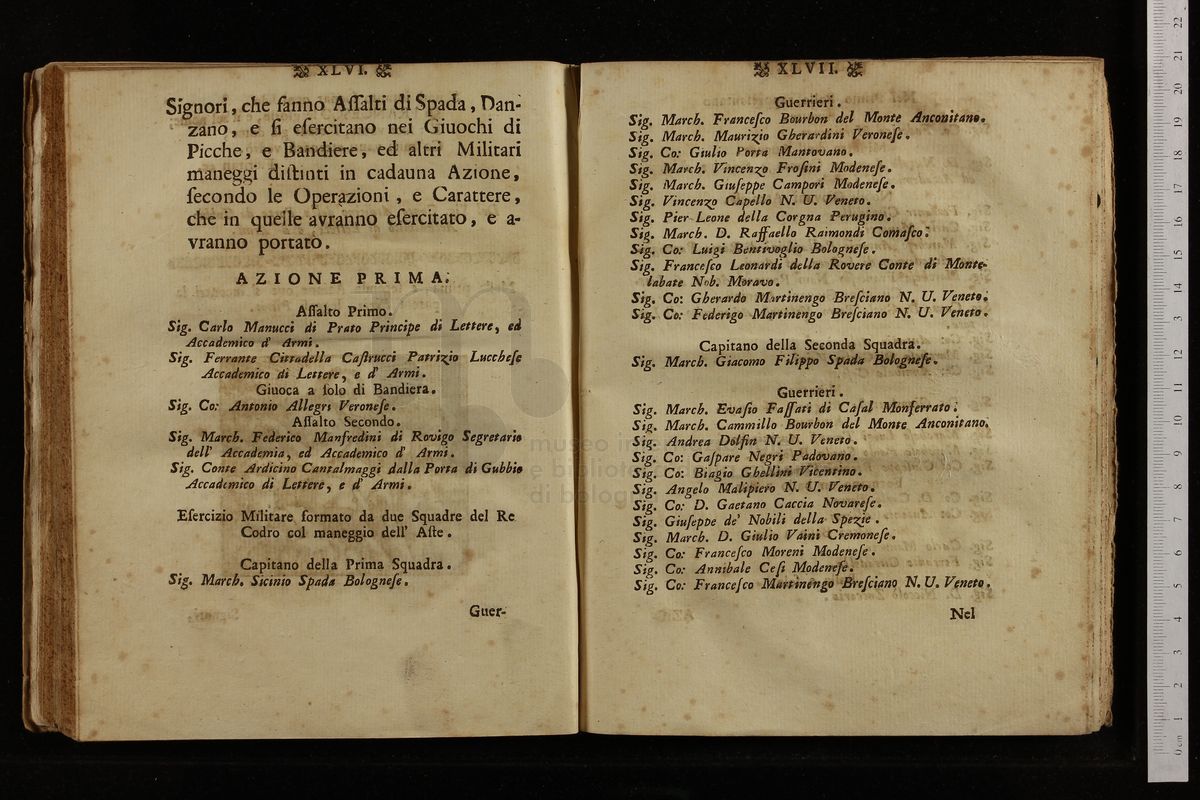 XLVI.
Signori, che fanno Aſſalti di Spada, Dan-
zano, e ſi eſercitano nei Giuochi di
Picche, e Bandiere, ed altri Militari
maneggi diſtinti in cadauna Azione,
ſecondo le Operazioni, e Carattere,
che in quelle avranno eſercitato, e a-
vranno portato.
AZIONE PRIMA.
Aſſalto Primo.
Sig. Carlo Manucci di Prato Principe di Lettere, ed
Accademico d' Armi.
Sig. Ferrante Cittadella Caſtrucci Patrizio Luccheſe
Accademico di Lettere, e d' Armi.
Giuoca a ſolo di Bandiera.
Sig. Co: Antonio Allegri Veroneſe.
Aſſalto Secondo.
Sig. March. Federico Manfredini di Rovigo Segretario
dell' Accademia, ed Accademico d' Armi.
Sig. Conte Ardicino Cantalmaggi dalla Porta di Gubbio
Accademico di Lettere, e d' Armi.
Eſercizio Militare formato da due Squadre del Re
Codro col maneggio dell' Aſte.
Capitano della Prima Squadra.
Sig. March. Sicinio Spada Bologneſe.
Guer-
XLVII.
Guerrieri.
Sig. March. Franceſco Bourbon del Monte Anconitano.
Sig. March. Maurizio Gherardini Veroneſe.
Sig. Co: Giulio Porta Mantovano.
Sig. March. Vincenzo Froſini Modeneſe.
Sig. March. Giuſeppe Campori Modeneſe.
Sig. Vincenzo Capello N. U. Veneto.
Sig. Pier Leone della Corgna Perugino.
Sig. March. D. Raffaello Raimondi Comaſco.
Sig. Co: Luigi Bentivoglio Bologneſe.
Sig. Franceſco Leonardi della Rovere Conte di Monte-
labate Nob. Moravo.
Sig. Co: Gherardo Martinengo Breſciano N. U. Veneto.
Sig. Co: Federigo Martinengo Breſciano N. U. Veneto.
Capitano della Seconda Squadra.
Sig. March. Giacomo Filippo Spada Bologneſe.
Guerrieri.
Sig. March. Evaſio Faſſati di Caſal Monferrato.
Sig. March. Cammillo Bourbon del Monte Anconitano.
Sig. Andrea Dolfin N. U. Veneto.
Sig. Co: Gaſpare Negri Padovano.
Sig. Co: Biagio Ghellini Vicentino.
Sig. Angelo Malipiero N. U. Veneto.
Sig. Co: D. Gaetano Caccia Novareſe.
Sig. Giuſeppe de' Nobili della Spezie.
Sig. March. D. Giulio Vaini Cremoneſe.
Sig. Co: Franceſco Moreni Modeneſe.
Sig. Co: Annibale Ceſi Modeneſe.
Sig. Co: Franceſco Martinengo Breſciano N. U. Veneto.
Nel